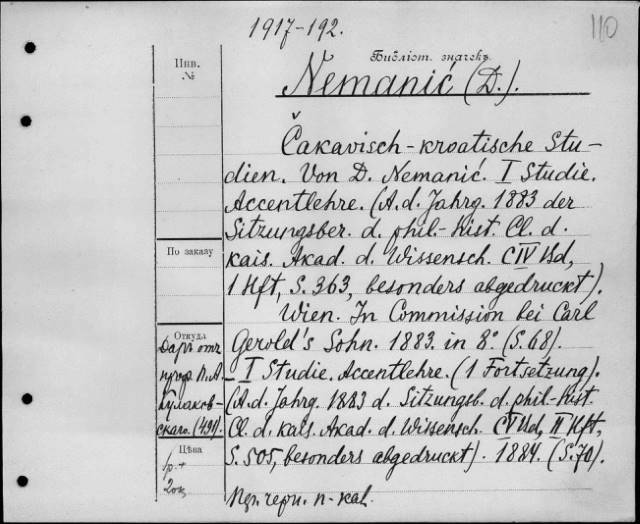 1917-192.
110
Инв.
№
Библіот. значекъ
Nemanić (D.).
Čakavisch-kroatische Stu-
dien. Von D. Nemanić. I Studie.
Accentlehre. (A. d. Jahrg. 1883 der
Sitzungsber. d. phil.-hist. Cl. d.
kais. Akad. d. Wissensch. CIV Bd,
1 Hft, S. 363, besonders abgedruckt).
Wien. In Commission bei Carl
Gerold's Sohn. 1883. in 8°. (S. 68).
— I Studie. Accentlehre. (1 Fortsetzung).
(A. d. Jahrg. 1883 d. Sitzungsb. d. phil.-hist.
Cl. d. kais. Akad. d. Wissensch. CV Bd, II Hft,
S. 505, besonders abgedruckt). 1884. (S. 70).
По заказу
Откуда
Даръ отъ
проф. П. А.
Кулаков-
скаго. (491).
Цѣна